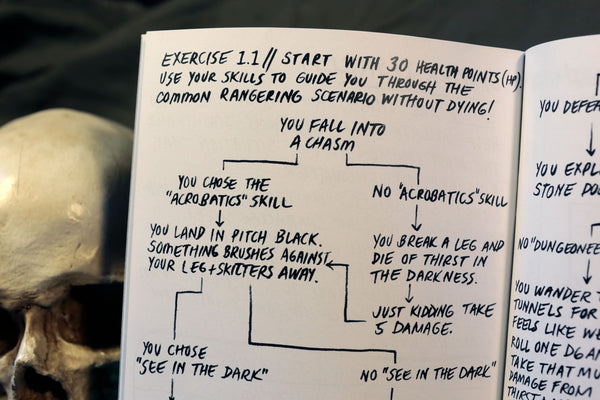 EXERCISE 1.1// START WITH 30 HEALTH POINTS (HP).
USE YOUR SKILLS TO GUIDE YOU THROUGH THE
COMMON RANGERING SCENARIO WITHOUT DYING!
YOU FALL INTO
A CHASM
YOU CHOSE THE
"ACROBATICS" SKILL
NO "ACROBATICS" SKILL
YOU LAND IN PITCH BLACK.
SOMETHING BRUSHES AGAINST
YOUR LEG + SKITTERS AWAY.
YOU BREAK A LEG AND
DIE OF THIRST IN
THE DARKNESS.
JUST KIDDING TAKE
5 DAMAGE.
YOU CHOSE
"SEE IN THE DARK"
NO "SEE IN THE DARK"
YOU
YOU
STONE
NO
YOU WANDER
TUNNELS FOR
FEELS LIKE
ROLL ONE D6
TAKE THAT
DAMAGE FROM